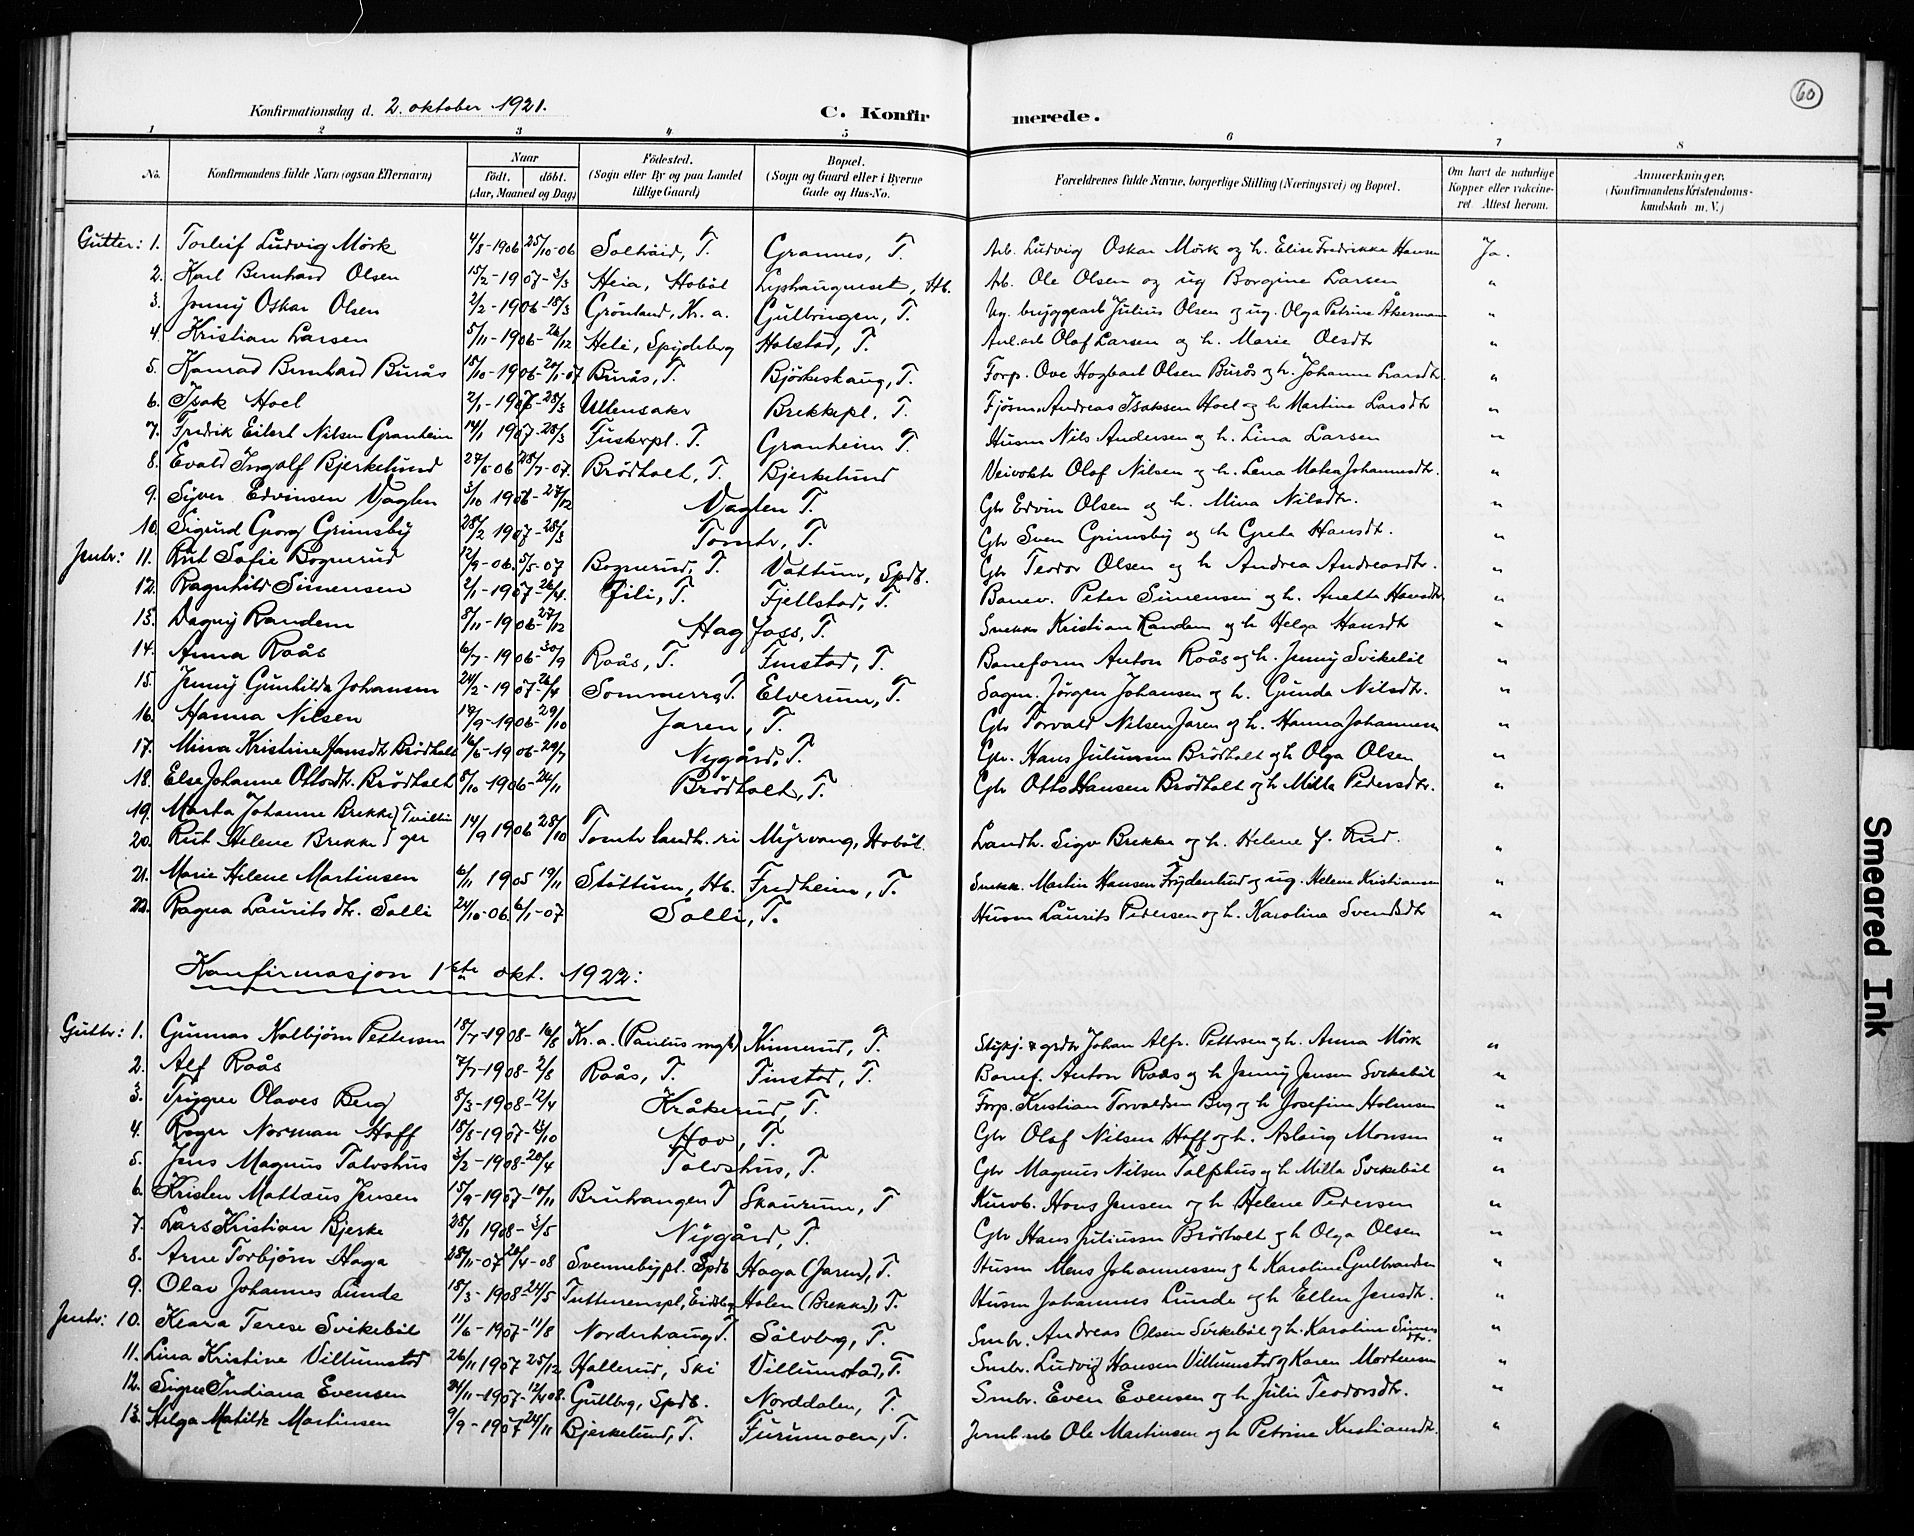 60
Konfirmationsdag d. 2. oktober 1921. C. Konfirmerede.
1 2 3 4 5 6 7 8
No. Konfirmandens fulde Navn (ogsaa Efternavn) Naar født. døbt. (Aar, Maaned og Dag) Fødested. (Sogn eller By og paa Landet tillige Gaard) Bopæl. (Sogn og Gaard eller i Byerne Gade og Hus-No. Forældrenes fulde Navne, borgerlige Stilling (Næringsvei) og Bopæl. Om havt de naturlige Kopper eller vakcineret. Attest herom. Anmærkninger. (Konfirmandens Kristendomskundskab m. V.)
Gutter: 1. Torleif Ludvig Mörk 4/8-1906 25/10-06 Solhöid, T. Grannes, T. Arb. Ludvig Oskar Mörk og h. Elise Fredrikke Hansen Ja.
2. Karl Bernhard Olsen 15/2-1907-3/3 Heia, Hobøl Lyshaugneset, Hb. Arb. Ole Olsen og ug Borgine Larsen "
3. Jenny Oskar Olsen 2/2-1906-18/3 Grönland, Kr.a. Gulbringen, T. Ug. bryggearb Julius Olsen og ug. Olga Petrine Åkerman "
4. Kristian Larsen 5/11-1906-26/12 Heli, Spydeberg Holstad, T. Anl.arb Olaf Larsen og h. Marie Olsdtr "
5. Konrad Bernhard Burås 18/10-1906-20/1-07 Burås, T. Björkeskaug, T. Forp. Ove Hagbart Olsen Burås og h. Johanne Larsdtr. "
6. Isak Hoel 2/1-1907-28/3 Ullensaker Brekkepl. T. Fjösm. Andreas Isaksen Hoel og h Martine Larsdtr "
7. Fredrik Eilert Nilsen Granheim 14/1 1907-28/3 Tuskerpl. T. Granheim T. Husm Nils Andersen og h. Lina Larsen "
8. Evald Ingolf Bjerkelund 27/5-06 28/7-07. Brödholt, T. Bjerkelund Veivokter Olaf Nilsen og h. Lena Matea Johannesdtr. "
9. Syver Edvinsen Vaglen 3/10 1906-27/12 Vaglen T. Gbr Edvin Olsen og h. Mina Nilsdtr. "
10. Sigurd Georg Grimsby 28/2 1907-28/3 Tomter, T. Gbr Sven Grimsby og h Greta Hansdtr. "
Jenter: 11. Rut Sofie Bognerud 12/9-06. 5/5-07 Bognerud, T. Vattum, Spdb. Gbr Teodor Olsen og h Andrea Andreasdtr. "
12. Ragnhild Simensen 2/1-1907-26/4. Fili, T. Fjellstad, T. Banev. Peter Simensen og h. Anette Hansdtr "
13. Dagny Randem 8/11-1906-27/12 Hagfoss, T. Snekk Kristian Randem og h Helga Hansdtr "
14. Anna Raås 6/7-1906-30/9 Raås, T. Finstad, T. Baneform Anton Raås og h. Jenny Svikebøl "
15. Jenny Gunhilda Johansen 24/2-1907-26/4 Sommerro, T. Elverum, T. Sagm. Jörgen Johansen og h. Gunda Nilsdtr. "
16. Hanna Nilsen 19/9-1906-29/10 Jaren, T. Gbr Torvald Nilsen Jaren og h. Hanna Johannesen "
17. Mina Kristine Hansdtr Brödholt 16/6-1906-29/7 Nygård, T. Gbr. Hans Juliussen Brödholt og h Olga Olsen "
18. Else Johanne Ottosdtr. Brödholt 8/10-1906-26/11 Brödholt, T. Gbr Otto Hansen Brödholt og h Milla Pedersdtr. "
19. Marta Johanne Brekke } Tvillin
20. Rut Helene Brekke } ger 14/9 1906 28/10 Tomter landh.ri Myrvang, Hobøl. Landh. Sigv Brekke og h. Helene f. Rud. "
21. Marie Helene Martinsen 6/11 1905 19/11 Støttum, Hb. Fredheim, T. Snekk. Martin Hansen Frydenlund og ug. Helene Kristiansen "
22. Ragna Lauritsdtr. Solli 24/10-06. 6/1-07 Solli, T. Husm Laurits Pedersen og h. Karolina Svendsdtr "
Konfirmasjon 1ste okt. 1922:
Gutter: 1. Gunnar Kolbjörn Pettersen 18/7-1908-16/8 Kr.a. (Paulus mgh) Kinnerud, T. Stykj. & grdbr Johan Alfr. Pettersen og h. Anna Mörk "
2. Alf Raås 7/7-1908-2/8 Raås, T. Finstad, T. Banef. Anton Raås og h Jenny Jensen Svikebøl "
3. Trygve Olaves Berg 8/3-1908-12/4 Kråkerud, T. Forp. Kristian Torvaldsen Berg og h Josefine Holmsen "
4. Roger Norman Hoff 18/8-1907-13/10 Hov, T. Gbr Olaf Nilsen Hoff og h. Aslaug Monsen "
5. Jens Magnus Talvshus 3/2-1908-20/4 Talvshus, T. Gbr Magnus Nilsen Talfshus og h Milla Svikebøl "
6. Kristen Mattæus Jensen 15/9-1907-10/11 Bruhaugen T Skaurum, T Kurvb. Hans Jensen og h Helene Pedersen "
7. Lars Kristian Bjerke 28/1 1908-3/5 Nygård, T. Gbr Hans Juliussen Brödholt og h Olga Olsen "
8. Arne Torbjörn Haga 28/11-07 20/4-08 Svennebypl. Spdb Haga (Jaren), T. Husm Mens Johannessen og h Karoline Gulbrandsen "
9. Olav Johannes Lunde 18/3-1908-24/5 Tutturenspl, Eidsbg Holen (Brekke), T. Husm Johannes Lunde og h Ellen Jensdtr. "
Jenter: 10. Klara Terese Svikebøl 11/6-1907-11/8 Norderhaug T. Sölvberg, T. Smbr. Andreas Olsen Svikebøl og h. Karoline Simensdtr. "
11. Lina Kristine Villumstad 26/11 1907 25/12 Hallerud, Ski Villumstad, T. Smbr. Ludvig Hansen Villumstad og Karen Mortensen "
12. Signe Indiana Evensen 24/11-1907-12/4 08. Gulberg, Spdb. Norddalen, T. Smbr. Even Evensen og h Julie Teodorsdtr. "
13. Helga Matilde Martinsen 9/9-1907 24/11 Bjerkelund, T. Furumoen, T. Jernb.arb Ole Martinsen og h Petrine Kristiansdtr. "
Smeared Ink